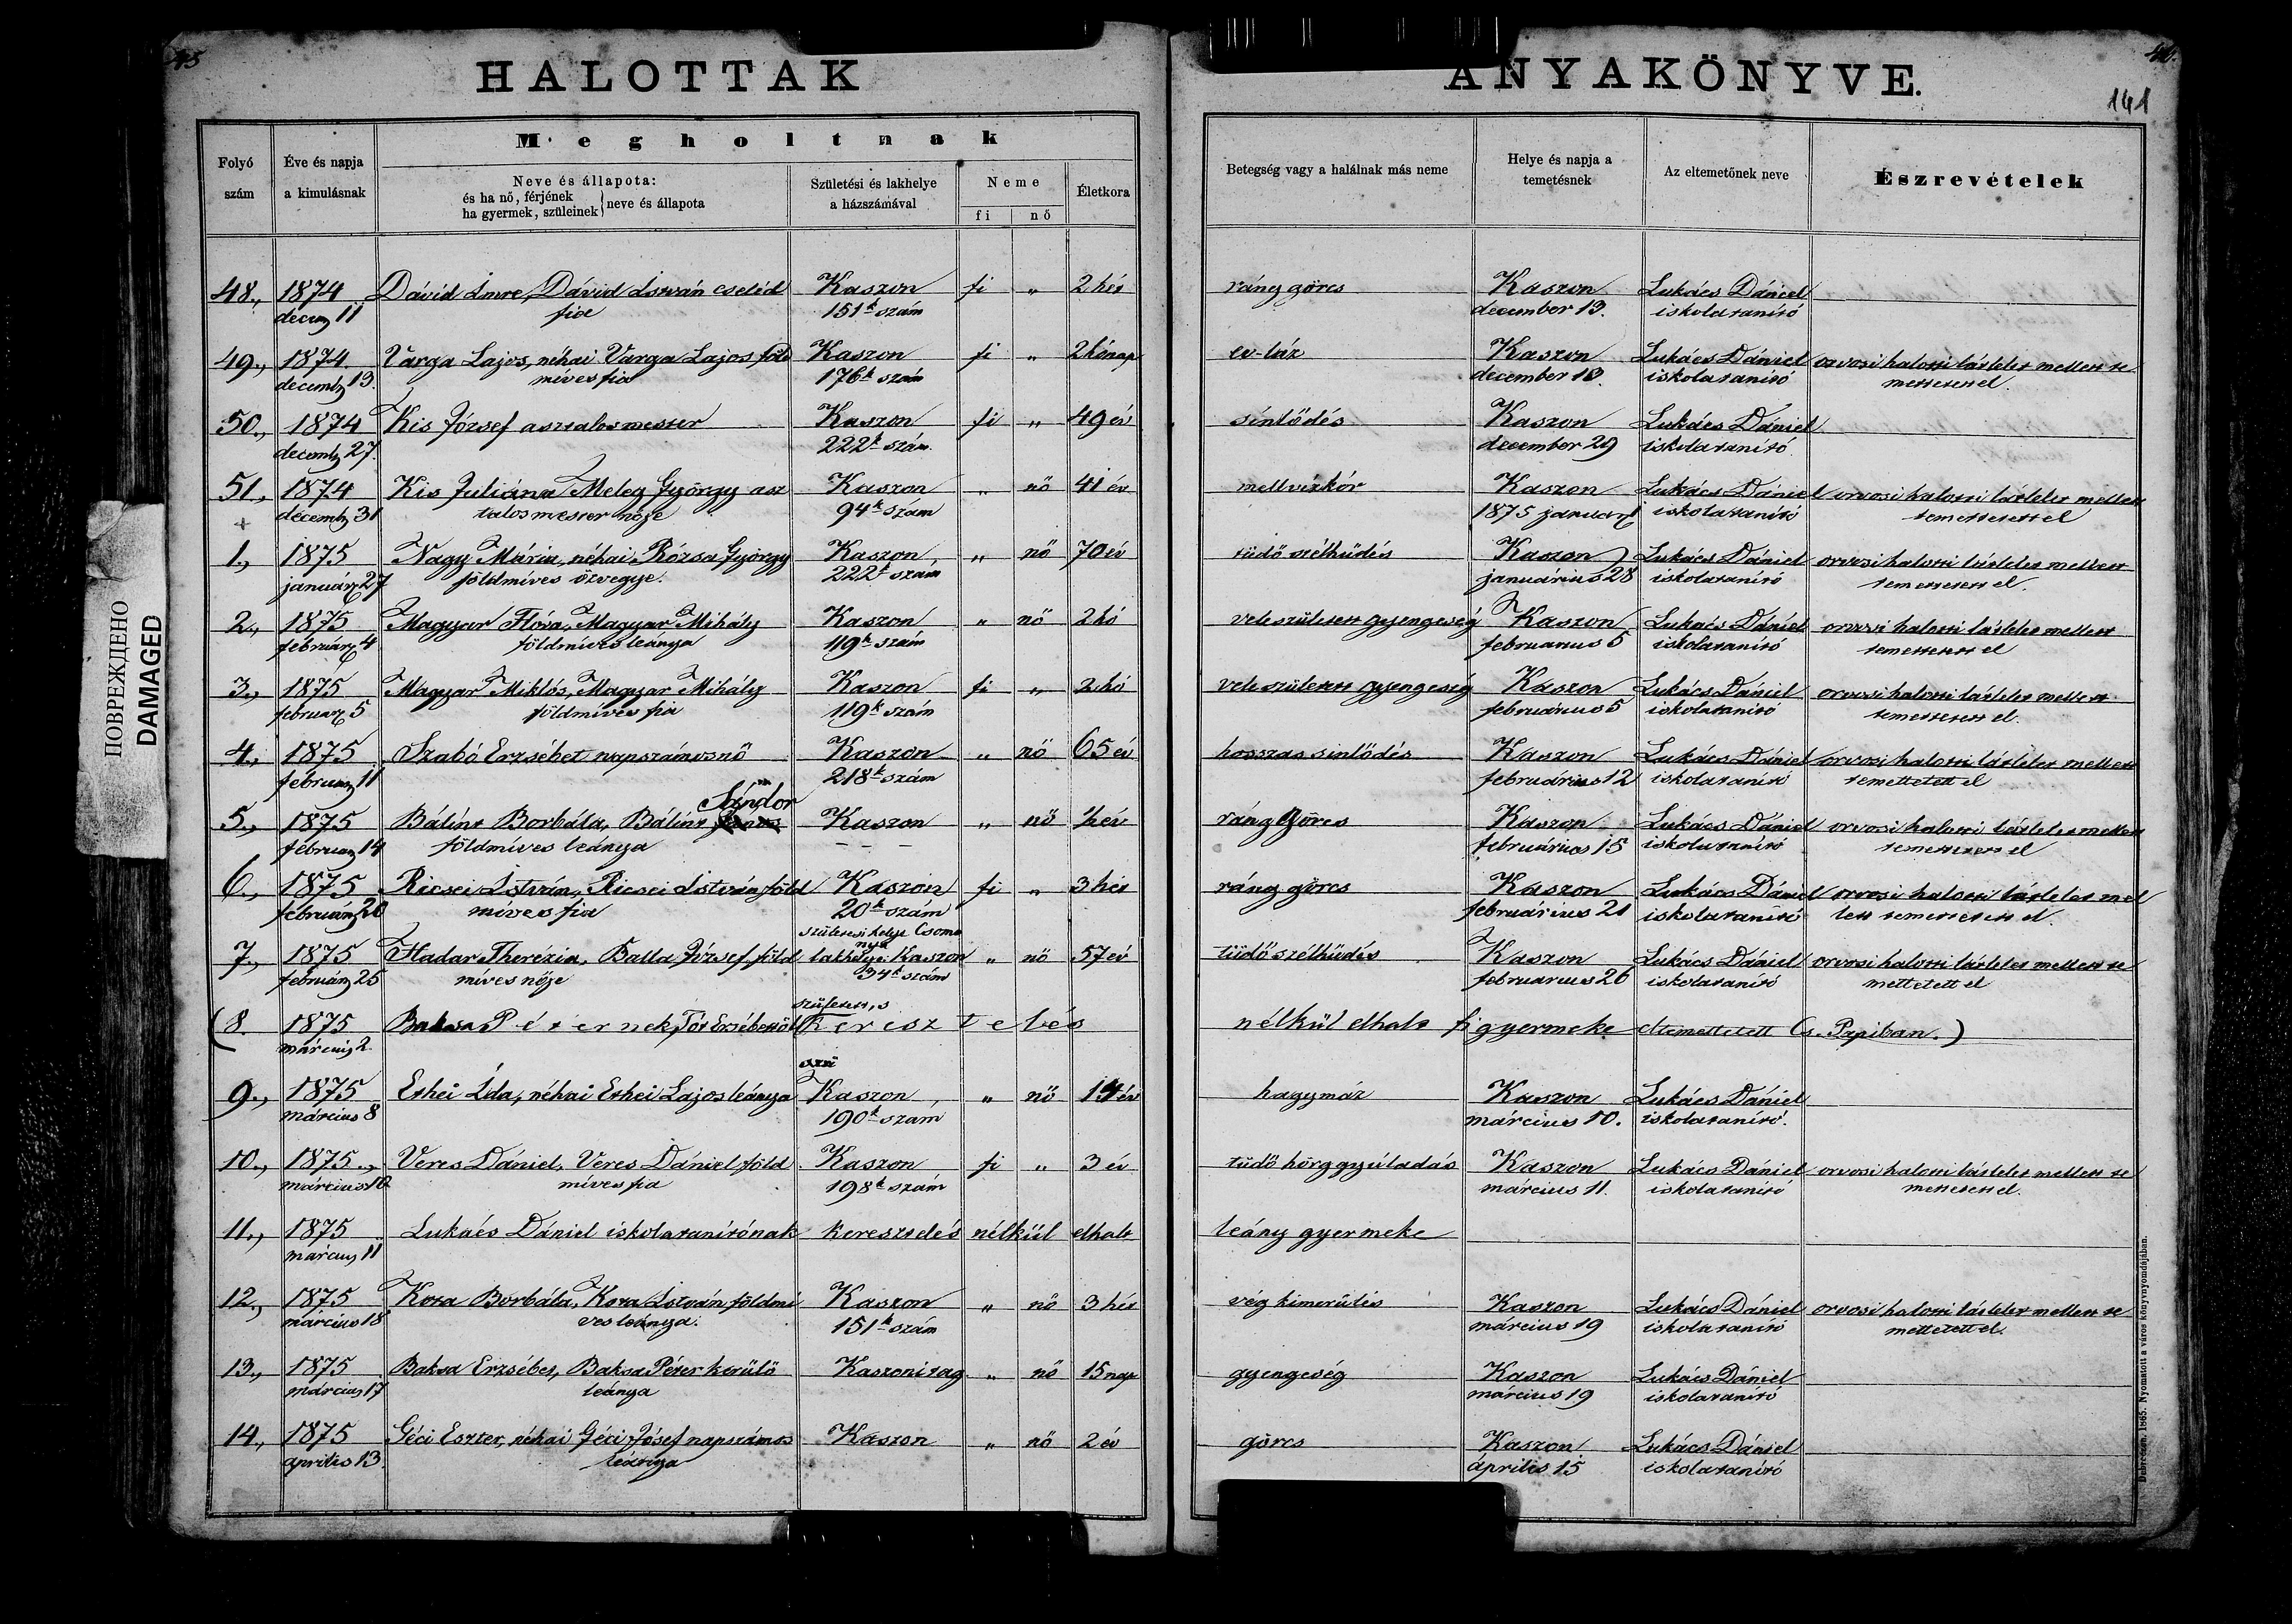 45
HALOTTAK
Megholtnak
Folyó szám
Éve és napja a kimulásnak
Neve és állapota:
és ha nő, férjének
ha gyermek, szüleinek } neve és állapota
Születési és lakhelye a házszámával
Neme
fi nő
Életkora
48., 1874 Dávid Imre, Dávid István cseléd Kaszon fi „ 2 hét
decemb 11 fia 151k szám
49., 1874 Varga Lajos, néhai Varga Lajos föld Kaszon fi „ 2 hónap
decemb 13. míves fia 176k szám
50., 1874 Kis József asztalos mester Kaszon fi „ 49 év
decemb 27. 222k szám
51., 1874 Kis Juliánna Meleg György asz Kaszon „ nő 41 év
decemb 31 talos mester nője 94k szám
1., 1875 Nagy Mária, néhai Rózsa György Kaszon „ nő 70 év
január 27 földmíves özvegye. 222k szám
2., 1875 Magyar Flóra, Magyar Mihály Kaszon „ nő 2 hó
február 4 földmíves leánya 119k szám
3., 1875 Magyar Miklós, Magyar Mihály Kaszon fi „ 2 hó
február 5 földmíves fia 119k szám
4., 1875 Szabó Erzsébet napszámosnő Kaszon „ nő 65 év
február 11 218k szám
Sándor
5., 1875 Bálint Borbála, Bálint Kaszon „ nő ½ év
február 14 földmíves leánya – – –
6., 1875 Ricsei István, Ricsei István föld Kaszon fi „ 3 hét
február 20 míves fia 20k szám
születési helye Csoma
nya
7., 1875 Hadar Therézia, Balla József föld lakhelye Kaszon „ nő 57 év
február 25 míves nője 34k szám
született, s
(8. 1875 Baksa Péternek, Tót Erzsébettől keresztelés
márcziu 2.
9., 1875 Ethei Ida, néhai Ethei Lajos leánya Kaszon „ nő 14 év
március 8 190k szám
10., 1875., Veres Dániel, Veres Dániel föld Kaszon fi „ 3 év
március 10 míves fia 198k szám
11., 1875 Lukács Dániel iskolatanítónak keresztelés nélkül elhalt
március 11
12., 1875 Kota Borbála, Kota István földmí Kaszon „ nő 3 hét
március 18 ves leánya. 151k szám
13., 1875 Baksa Erzsébet, Baksa Péter kerülő Kaszonitag „ nő 15 nap
március 17 leánya
14., 1875 Géci Eszter, néhai Géci József napszámos Kaszon „ nő 2 év
április 13. leánya
ANYAKÖNYVE.
141
Betegség vagy a halálnak más neme
Helye és napja a temetésnek
Az eltemetőnek neve
Észrevételek
ráng görcs Kaszon Lukács Dániel
december 13. iskolatanító
ev-láz Kaszon Lukács Dániel orvosi halotti látlelet mellett te
december 18. iskolatanító mettetett el.
sinlődés Kaszon Lukács Dániel
december 29 iskolatanító
mellvizkór Kaszon Lukács Dániel orvosi halotti látlelet mellett
1875 január 1 iskolatanító temettetett el
tüdő szélhüdés Kaszon Lukács Dániel orvosi halotti látlelet mellett
januárius 28 iskolatanító temettetett el.
veleszületett gyengeség Kaszon Lukács Dániel orvosi halotti látlelet mellett
februarius 5 iskolatanító temettetett el
veleszületett gyengeség Kaszon Lukács Dániel orvosi halotti látlelet mellett
február­ius 5 iskolatanító temettetett el.
hosszas sinlődés Kaszon Lukács Dániel orvosi halotti látlelet mellett
februárius 12 iskolatanító temettetett el
ráng görcs Kaszon Lukács Dániel orvosi halotti látlelet mellett
februárius 15 iskolatanító temettetett el
ráng görcs Kaszon Lukács Dániel orvosi halotti látlelet mel
februárius 21 iskolatanító lett temettetett el.
tüdő szélhüdés Kaszon Lukács Dániel orvosi halotti látlelet mellett te
februarius 26 iskolatanító mettetett el
nélkül elhalt fi gyermeke eltemettetett (s. Papiban.)
hagymáz Kaszon Lukács Dániel
március 10. iskolatanító.
tüdő hörg gyúladás Kaszon Lukács Dániel orvosi halotti látlelet mellett te
március 11. iskolatanító mettetett el.
leány gyermeke
vég kimerülés Kaszon Lukács Dániel orvosi halotti látlelet mellett te
március 19 iskolatanító mettetett el.
gyengeség Kaszon Lukács Dániel
március 19 iskolatanító
görcs Kaszon Lukács Dániel
április 15 iskolatanító
Debreczen. 1865. Nyomatott a város könyvnyomdájában.
ПОВРЕЖДЕНО
DAMAGED